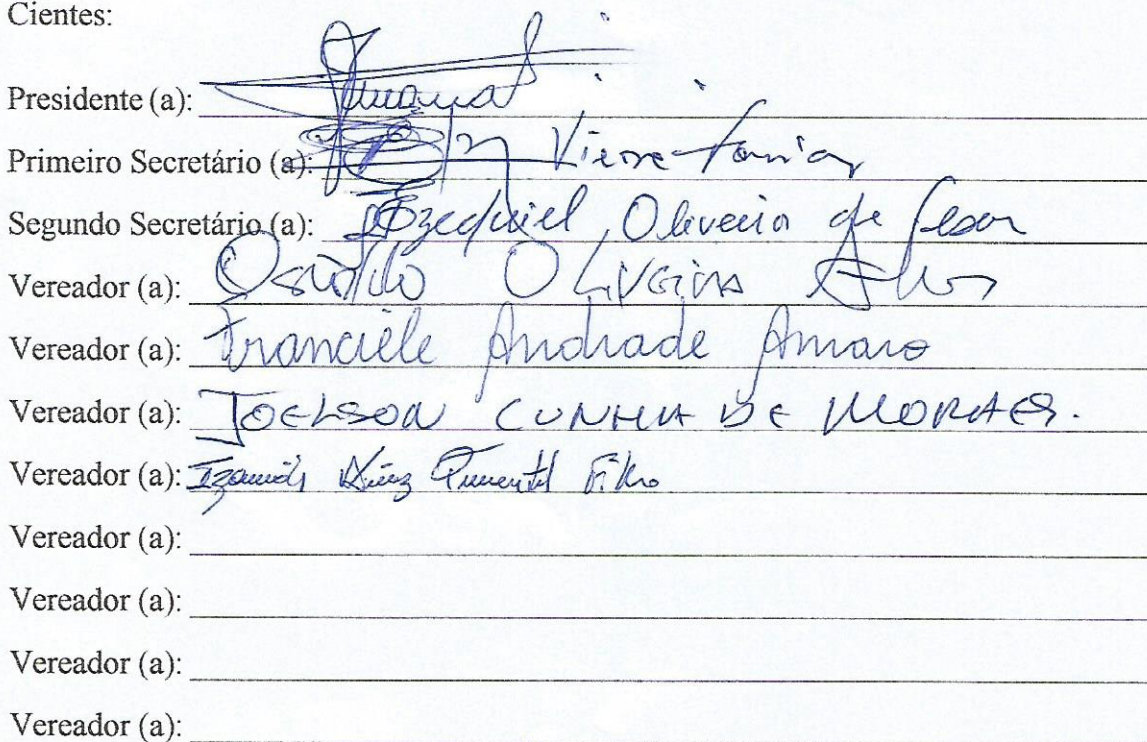 Cientes:
Presidente (a):
Primeiro Secretário (a): Vieira Farias
Segundo Secretário (a): Ezequiel Oliveira de
Vereador (a): Osvaldo OLiVeira Alves
Vereador (a): Franciele Andrade Amaro
Vereador (a): JOELSON CUNHA DE MORAES.
Vereador (a): Pimentel Filho
Vereador (a):
Vereador (a):
Vereador (a):
Vereador (a):